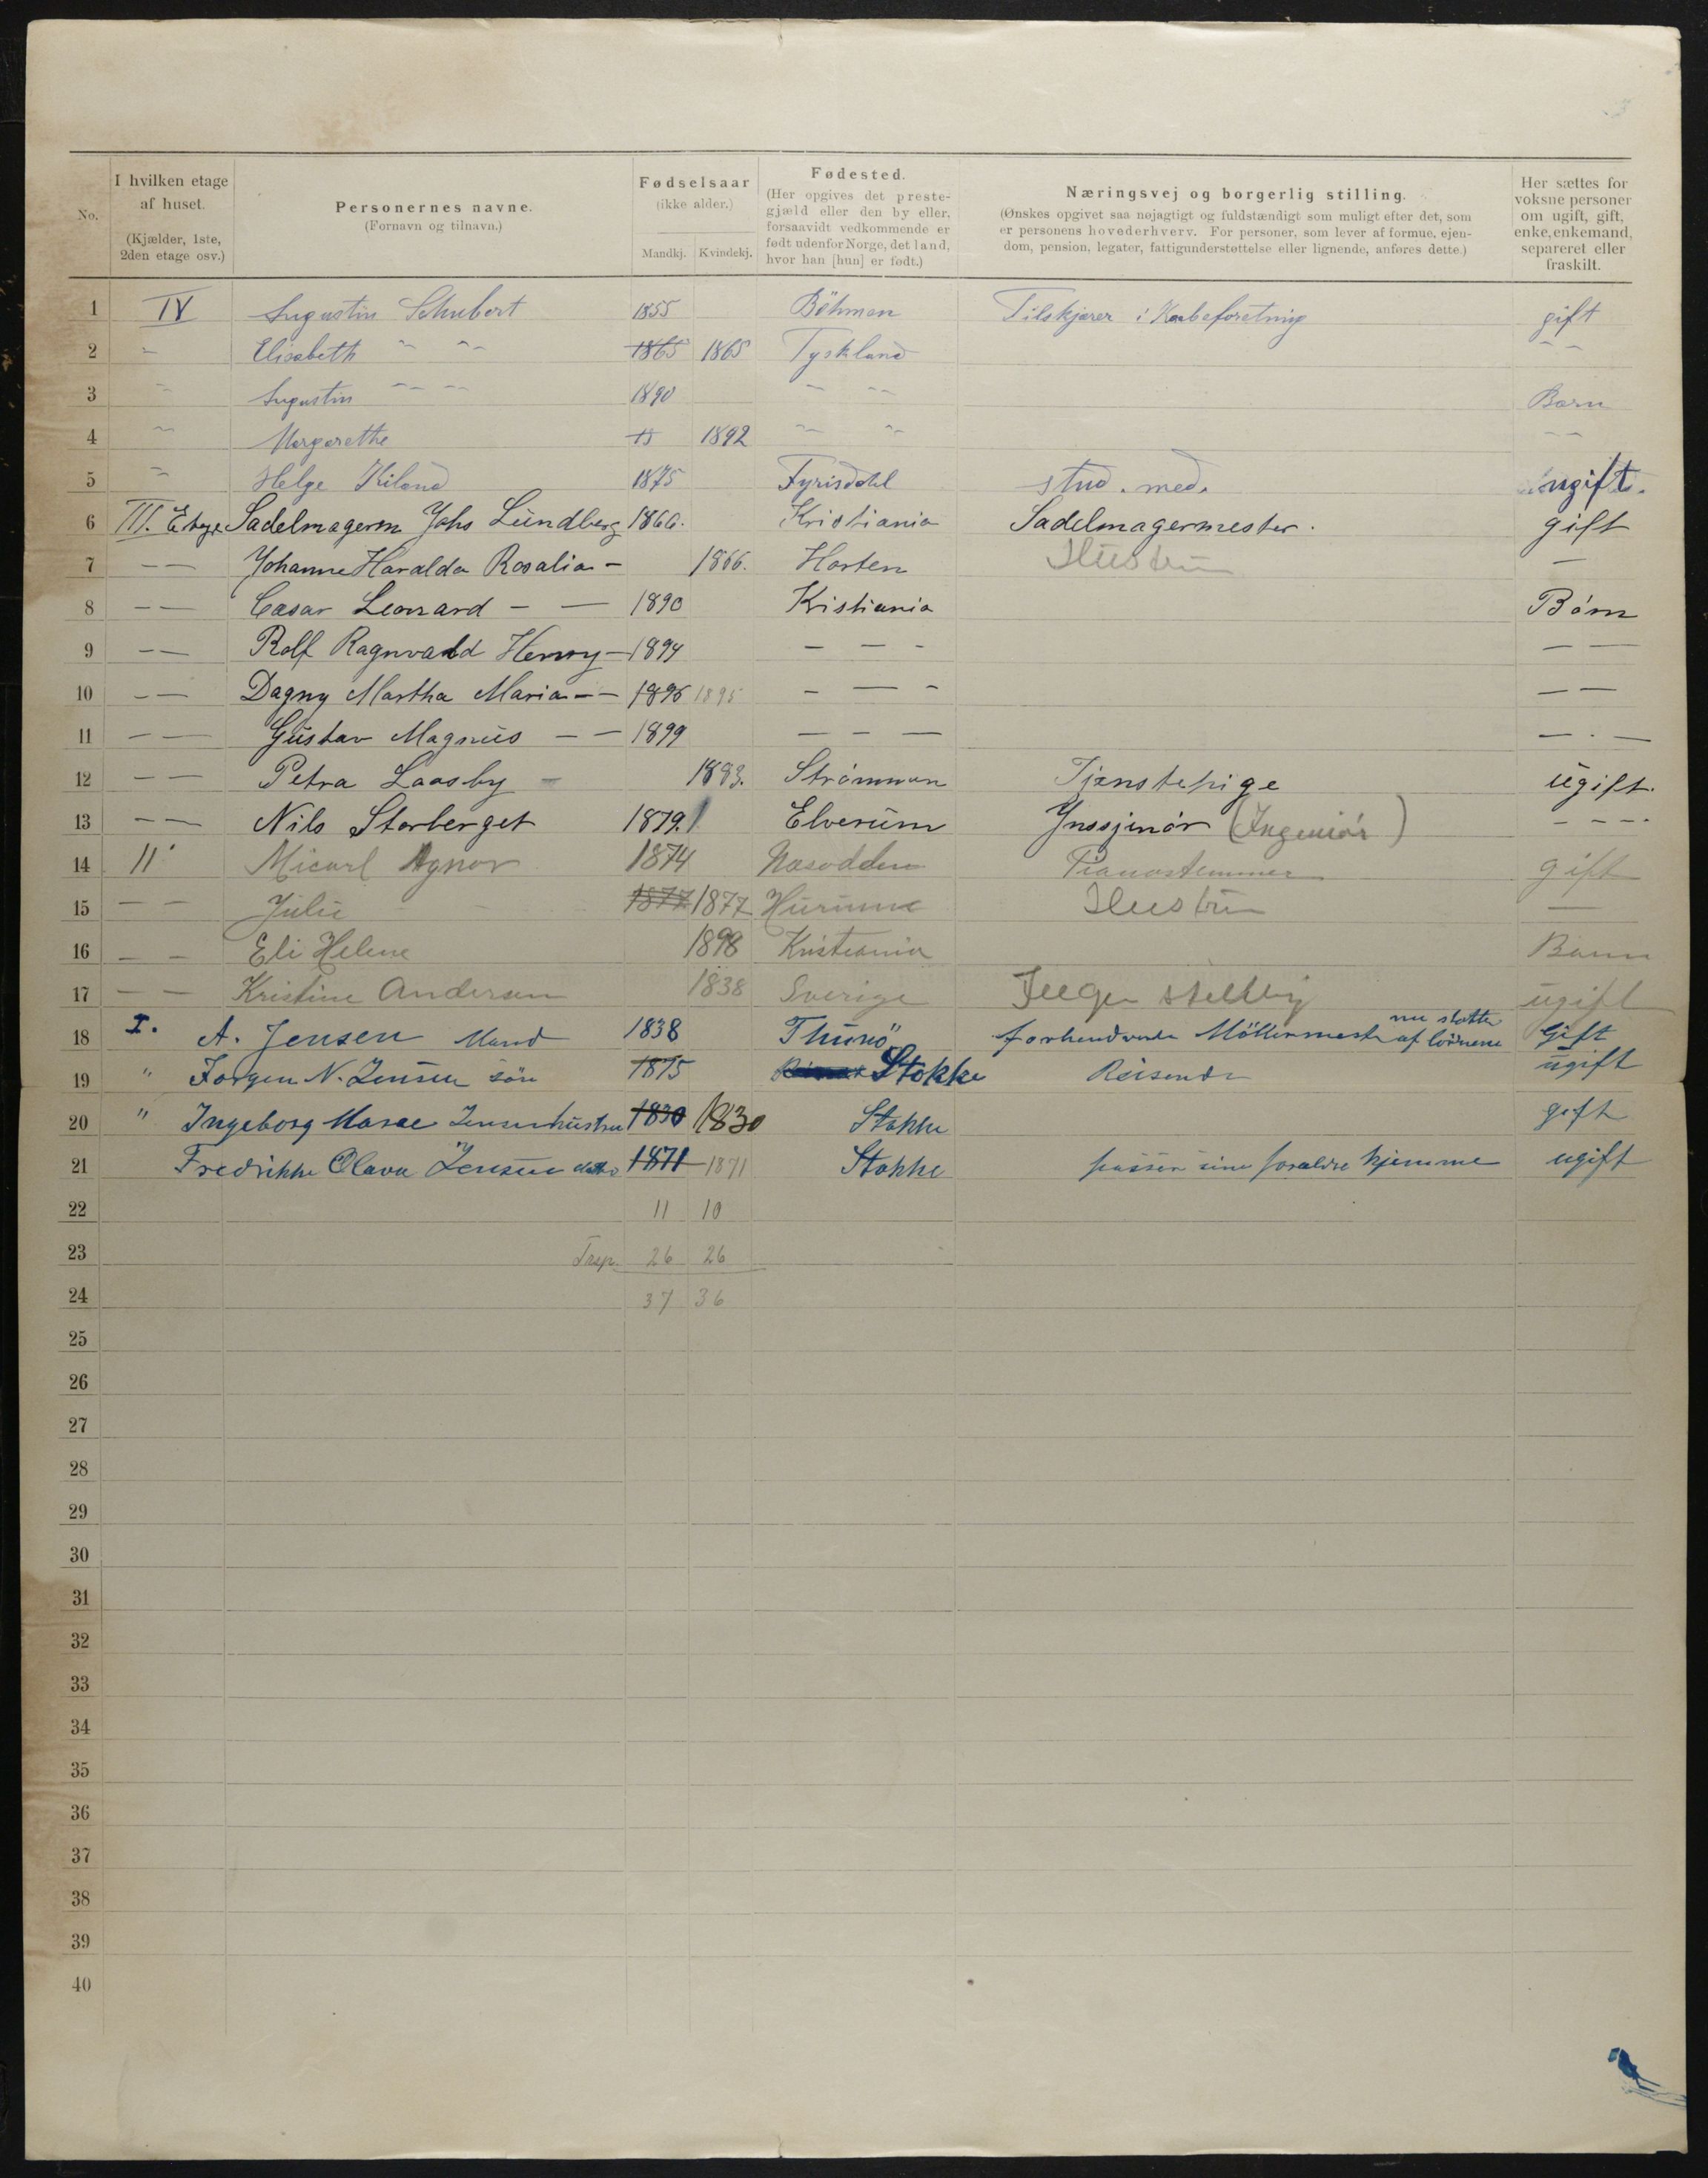 No.
I hvilken etage af huset. (Kjælder, 1ste, 2den etage osv.)
Personernes navne. (Fornavn og tilnavn.)
Fødselsaar (ikke alder.) Mandkj. Kvindekj.
Fødested. (Her opgives det prestegjæld eller den by eller, forsaavidt vedkommende er født udenfor Norge, det land, hvor han [hun] er født.)
Næringsvej og borgerlig stilling. (Ønskes opgivet saa nøjagtigt og fuldstændigt som muligt efter det, som er personens hovederhverv. For personer, som lever af formue, ejendom, pension, legater, fattigunderstøttelse eller lignende, anføres dette.)
Her sættes for voksne personer om ugift, gift, enke, enkemand, separeret eller fraskilt.
1 IV Augustin Schubert 1855 Böhmen Tilskjærer i gift
2 " Elisabeth " " 1865 1865 Tyskland " "
3 " Augustin " " 1890 " " Barn
4 " Margarethe 18 1892 " " " "
5 " Helge Kiland 1875 Fyrisdahl stud. med. ugift.
6 III. Etage Sadelmagerm Johs Lundberg 1866. Kristiania Sadelmagermester. gift
7 — — Johanne Haralda Rosalia — 1866. Horten Hustru —
8 — — Cæsar Leonard — — 1890 Kristiania Börn
9 — — Rolf Ragnvald Henry — 1894 — — - — —
10 — — Dagny Martha Maria — — 1895 1895 — — - — —
11 — — Gustav Magnus — — 1899 — — — — . —
12 — — Petra Laasby 1883. Strömmen Tjenstepige ugift.
13 — — Nils Storberget 1879. Elverum Jnssjinör (Ingeniör) - - - -
14 II Micael Agnor 1874 Næsodden Pianostemmer gift
15 — — Julie — 1877 1877 Hurum Hustru —
16 — — Eli Helene 1898 Kristiania Barn
17 — — Kristine Andersen 1838 Sverige ugift
18 I. A. Jensen Mand 1838 Thurö forhenværende Möllermester nu støttes af Gift
19 " Jørgen N. Jensen sön 1875 Stokke Reisende ugift
20 " Ingeborg Marie Jensen hustru 1830 1830 Stokke gift
21 Fredrikke Olava Jensen datter 1871 1871 Stokke passer sine forældre hjemme ugift
22 11 10
23 Trsp. 26 26
24 37 36
25
26
27
28
29
30
31
32
33
34
35
36
37
38
39
40